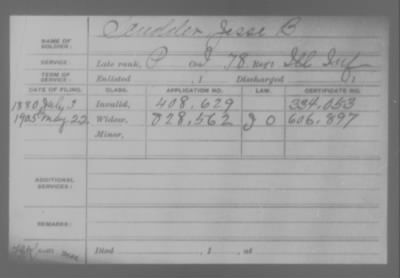 NAME OF SOLDIER: Scudder, Jesse B
SERVICE: Late rank, P Co. I 78 Reg't Ill Inf
TERM OF SERVICE: Enlisted , 1 Discharged , 1
DATE OF FILING. CLASS. APPLICATION NO. LAW. CERTIFICATE NO.
1880 July 3 Invalid, 408,629 334,053
1905 May 22 Widow, 828,562 O 606,897
Minor,
ADDITIONAL SERVICES:
REMARKS:
Died , 1 , at